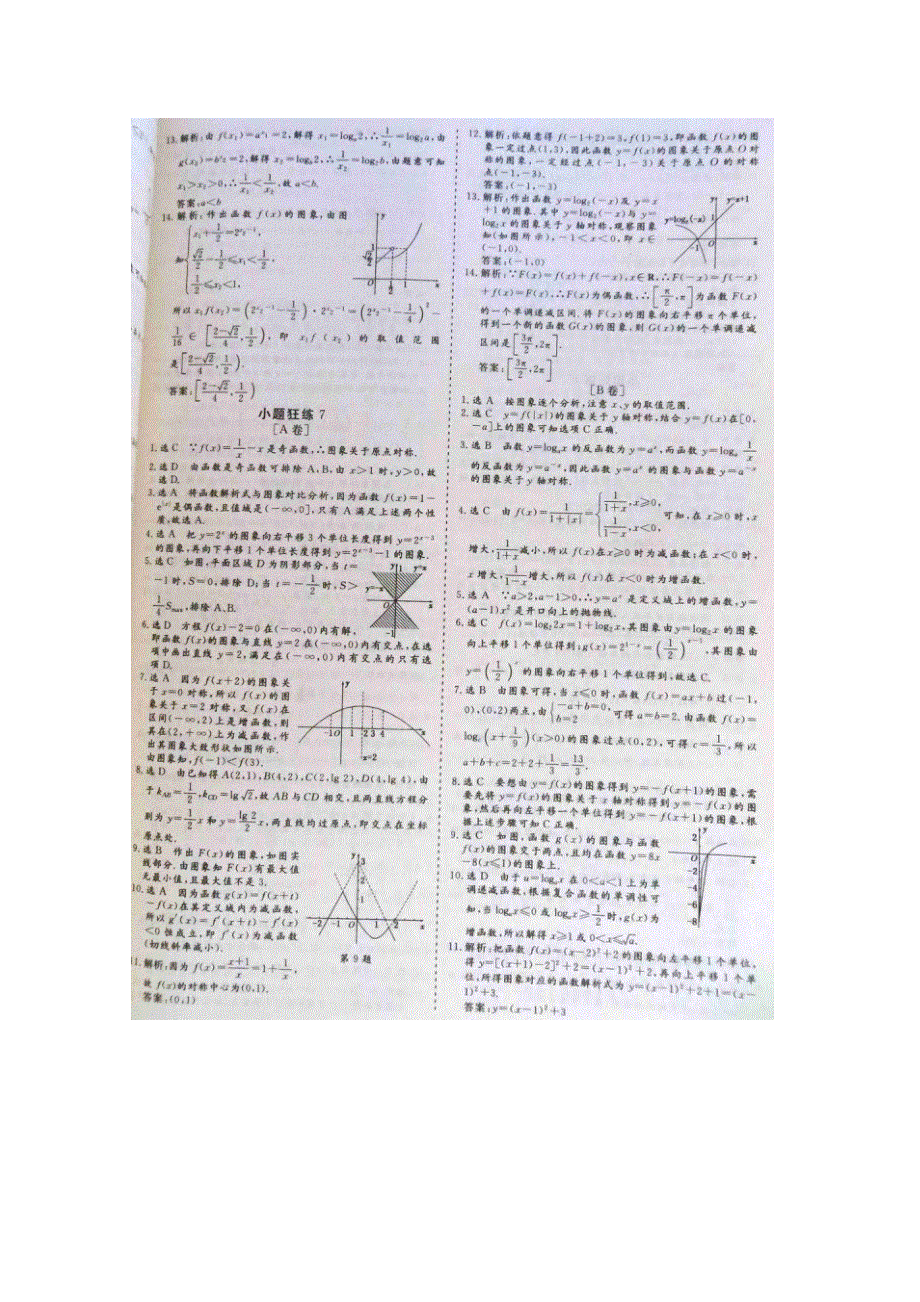 13.解析:由 f(x₁)=aˣ¹=2,解得 x₁=logₐ2,∴1/x₁=log₂a,由
g(x₂)=bˣ²=2,解得 x₂=log_b2,∴1/x₂=log₂b,由题意可知
x₁>x₂>0,∴1/x₁<1/x₂,故 a<b.
答案:a<b
14.解析:作出函数 f(x)的图象,由图
x₁+1/2=2^(x₂-1),
知 √2/2-1/2≤x₁<1/2,
1/2≤x₂<1,
所以 x₁f(x₂)=(2^(x₂-1)-1/2)·2^(x₂-1)=(2^(x₂-1)-1/4)²-
1/16∈[(2-√2)/4,1/2),即 x₁f(x₂)的取值范围
是[(2-√2)/4,1/2).
答案:[(2-√2)/4,1/2)
小题狂练 7
[A卷]
1.选C ∵f(x)=1/x-x是奇函数,∴图象关于原点对称.
2.选D 由函数是奇函数可排除 A,B,由 x>1 时,y>0,故
选D.
3.选A 将函数解析式与图象对比分析,因为函数 f(x)=1-
e^|x|是偶函数,且值域是(-∞,0],只有 A 满足上述两个性
质,故选A.
4.选A 把 y=2ˣ 的图象向右平移3个单位长度得到 y=2^(x-3)
的图象,再向下平移1个单位长度得到 y=2^(x-3)-1的图象.
5.选C 如图,平面区域 D 为阴影部分,当 t=
-1时,S=0,排除 D;当 t=-1/2时,S>
1/4 Smax,排除A,B.
6.选D 方程 f(x)-2=0在(-∞,0)内有解,
即函数 f(x)的图象与直线 y=2在(-∞,0)内有交点,在选
项中画出直线 y=2,满足在(-∞,0)内有交点的只有选
项D.
7.选A 因为 f(x+2)的图象关
于 x=0 对称,所以 f(x)的图
象关于 x=2 对称,又 f(x)在
区间(-∞,2)上是增函数,则
其在(2,+∞)上为减函数,作
出其图象大致形状如图所示.
由图象知,f(-1)<f(3).
8.选D 由已知得 A(2,1),B(4,2),C(2,lg 2),D(4,lg 4),由
于 k_AB=1/2,k_CD=lg√2,故 AB 与 CD 相交,且两直线方程分
别为 y=1/2 x 和 y=lg 2/2 x,两直线均过原点,即交点在坐标
原点处.
9.选B 作出 F(x)的图象,如图实
线部分.由图象知 F(x)有最大值
无最小值,且最大值不是3.
10.选A 因为函数 g(x)=f(x+t)
-f(x)在其定义域内为减函数,
所以 g′(x)=f′(x+t)-f′(x)
<0 恒成立,即 f′(x)为减函数
(切线斜率减小).
第9题
11.解析:因为 f(x)=(x+1)/x=1+1/x,
故 f(x)的对称中心为(0,1).
答案:(0,1)
12.解析:依题意得 f(-1+2)=3,f(1)=3,即函数 f(x)的图
象一定过点(1,3),因此函数 y=f(x)的图象关于原点 O 对
称的图象,一定经过点(-1,-3)关于原点 O 的对称
点(-1,-3).
答案:(-1,-3)
13.解析:作出函数 y=log₂(-x)及 y=x
+1的图象.其中 y=log₂(-x)与 y=
log₂x 的图象关于 y 轴对称,观察图象
知(如图所示),-1<x<0,即 x∈
(-1,0).
答案:(-1,0)
y=x+1
y=log₂(-x)
14.解析:∵F(x)=f(x)+f(-x),x∈R,∴F(-x)=f(-x)
+f(x)=F(x),∴F(x)为偶函数,∴[π/2,π]为函数 F(x)
的一个单调递减区间.将 F(x)的图象向右平移 π 个单位,
得到一个新的函数 G(x)的图象,则 G(x)的一个单调递减
区间是[3π/2,2π].
答案:[3π/2,2π]
[B卷]
1.选A 按图象逐个分析,注意 x、y 的取值范围.
2.选C y=f(|x|)的图象关于 y 轴对称,结合 y=f(x)在[0,
-a]上的图象可知选项C正确.
3.选B 函数 y=logₐx 的反函数为 y=aˣ,而函数 y=logₐ 1/x
的反函数为 y=a⁻ˣ,因此函数 y=aˣ 的图象与函数 y=a⁻ˣ
的图象关于 y 轴对称.
4.选C 由 f(x)=1/(1+|x|)={1/(1+x),x≥0, 1/(1-x),x<0, 可知,在 x≥0 时,x
增大,1/(1+x)减小,所以 f(x)在 x≥0 时为减函数;在 x<0 时,
x 增大,1/(1-x)增大,所以 f(x)在 x<0 时为增函数.
5.选A ∵a>2,a-1>0,∴y=aˣ 是定义域上的增函数,y=
(a-1)x² 是开口向上的抛物线.
6.选C f(x)=log₂2x=1+log₂x,其图象由 y=log₂x 的图象
向上平移1个单位得到;g(x)=2^(1-x)=(1/2)^(x-1),其图象由
y=(1/2)ˣ 的图象向右平移1个单位得到,故选C.
7.选B 由图象可得,当 x≤0 时,函数 f(x)=ax+b 过(-1,
0),(0,2)两点,由{-a+b=0, b=2 可得 a=b=2.由函数 f(x)=
log_c(x+1/9)(x>0)的图象过点(0,2),可得 c=1/3,所以
a+b+c=2+2+1/3=13/3.
8.选C 要想由 y=f(x)的图象得到 y=-f(x+1)的图象,需
要先将 y=f(x)的图象关于 x 轴对称得到 y=-f(x)的图
象,然后再向左平移一个单位得到 y=-f(x+1)的图象,根
据上述步骤可知C正确.
9.选C 如图,函数 g(x)的图象与函数
f(x)的图象交于两点,且均在函数 y=8x
-8(x≤1)的图象上.
10.选D 由于 u=logₐx 在 0<a<1 上为单
调递减函数,根据复合函数的单调性可
知,当 logₐx≤0 或 logₐx≥1/2 时,g(x)为
增函数,所以解得 x≥1 或 0<x≤√a.
11.解析:把函数 f(x)=(x-2)²+2的图象向左平移1个单位,
得 y=[(x+1)-2]²+2=(x-1)²+2,再向上平移1个单
位,所得图象对应的函数解析式为 y=(x-1)²+2+1=(x-
1)²+3.
答案:y=(x-1)²+3